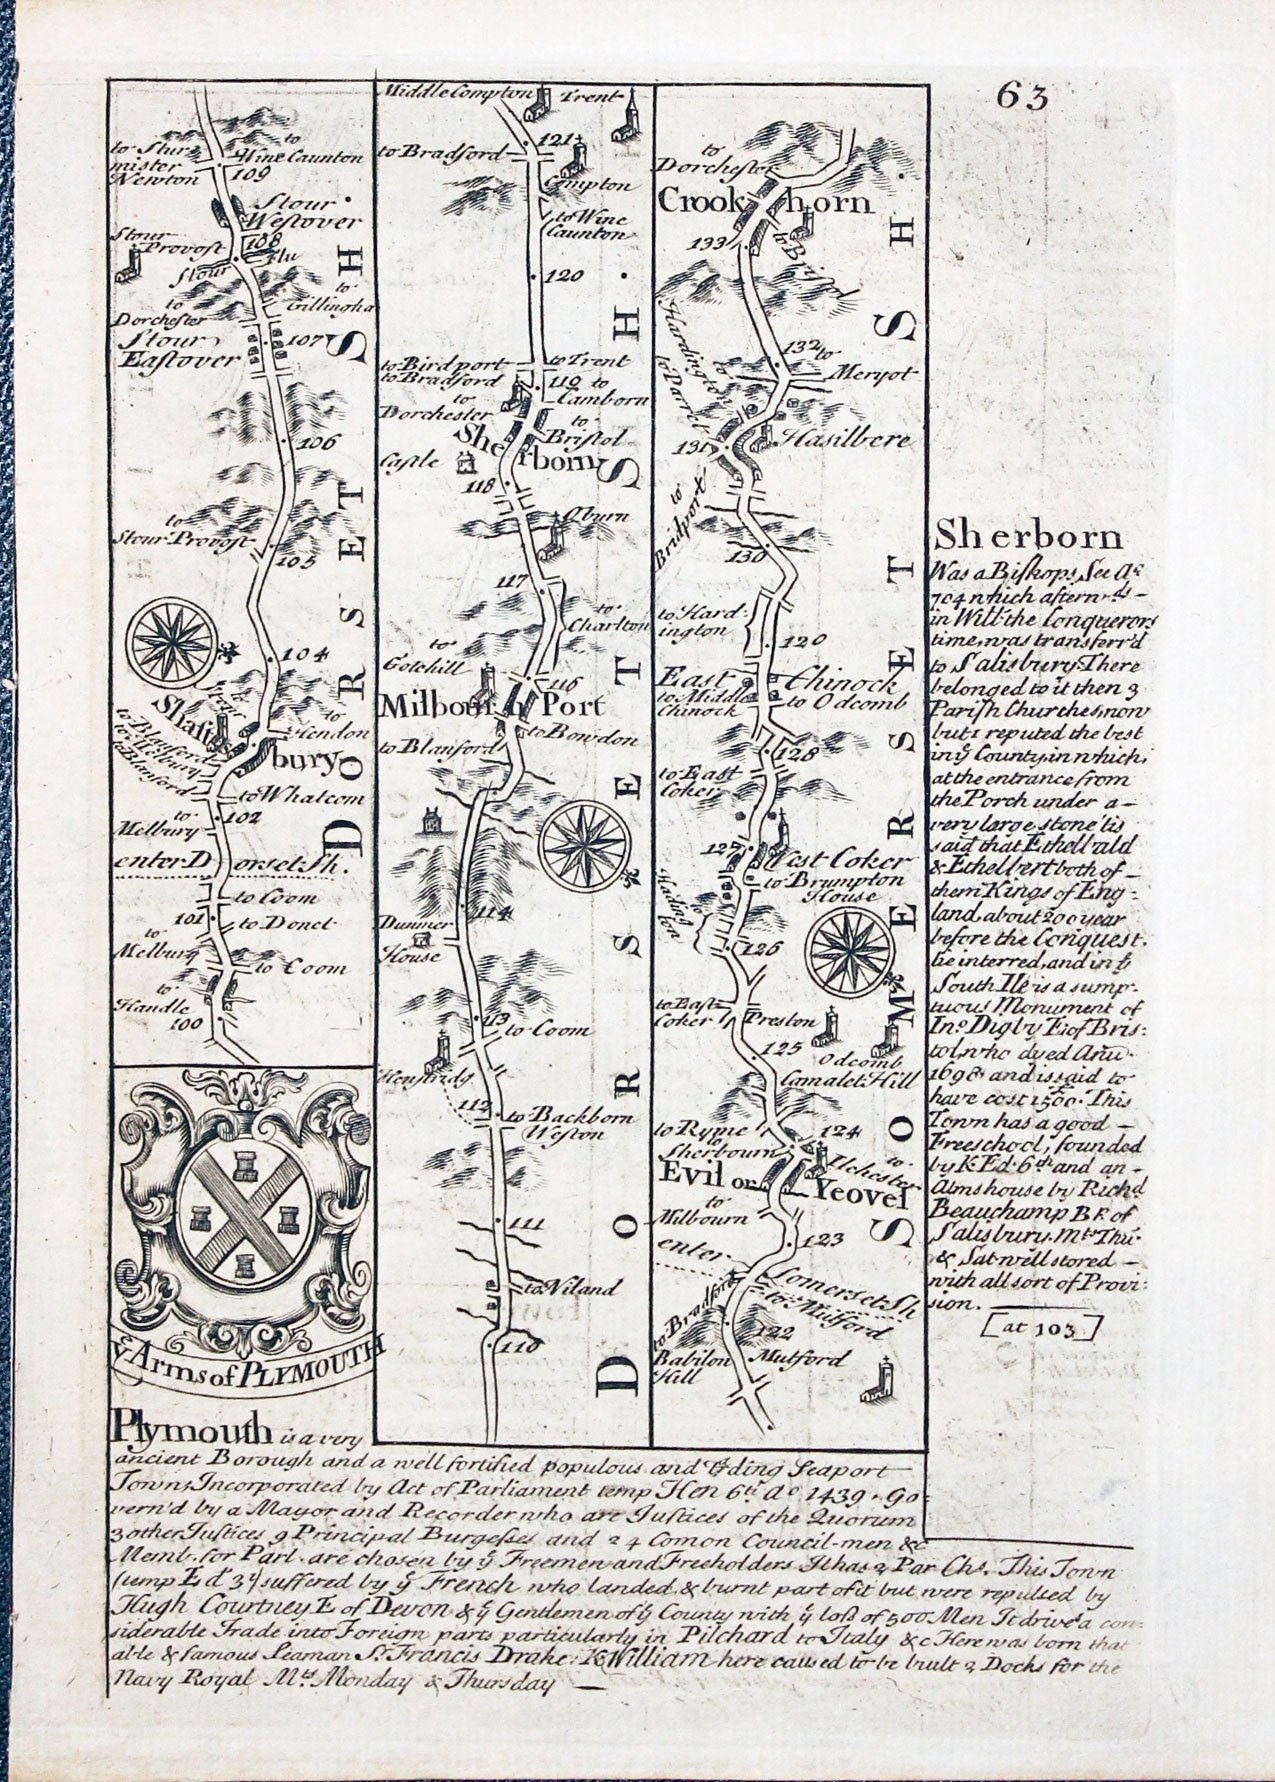 63
to Stur
mister
Newton
to
Wine Caunton
109
Stour
Westover
Stour
Provost
108
Flu
Stour
to
Gillingha
to
Dorchester
Stour
Eastover
107
106
to
Stour Provost
105
104
Shafts
bury
to
Hendon
to Blanford
to Whatcom
102
to
Melbury
enter D orset Sh.
to Coom
101
to Donct
to
Melbury
to Coom
to
Handle
100
DORSET SH
ye Arms of PLYMOUTH
Middle Compton
Trent
121
to Bradford
Compton
to Wine
Caunton
120
to Birdport
to Trent
to Bradford
119
to
Camborn
to
Dorchester
to
Bristol
Sherborn
Castle
118
Oburn
117
to
Charlton
to
Gotehill
116
Milbourn Port
to Bowdon
to Blanford
114
Dunmer
House
113
to Coom
Henstridg
112
to Backborn
Weston
111
to Niland
110
DORSET SH.
to
Dorchester
Crookhorn
133
to Bristol
132
to
Meryot
to
Hardington
to Parret
131
Hasilbere
to
Bridport
130
to Hard:
ington
120
East Chinock
to Middle
Chinock
to Odcomb
128
to East
Coker
127
West Coker
to Brumpton
House
to
Hading
ton
126
to East
Coker
Preston
125
Odcomb
Camalet Hill
to Ryme
124
to
Sherbourn
to
Ilchester
Evil or Yeovel
to
Milbourn
123
enter
Somerset Sh
to Mulford
to Bradford
122
Babilon
Hill
Mutford
SOMERSET SH.
Sherborn
Was a Bishops See Ao
704 which afterwds
in Will: the Conquerors
time, was transferr'd
to Salisbury There
belonged to it then 3
Parish Churches, now
but 1 reputed the best
in ye County, in which,
at the entrance from
the Porch under a
very large stone 'tis
said that Ethelbald
& Ethelbert both of
them Kings of Eng:
land, about 200 year
before the Conquest.
lie interred, and in ye
South Ile is a sump:
tuous Monument of
Ino. Digby E: of Bris:
tol, who dyed Anno
1698 and is said to
have cost 1500£. This
Town has a good
Freeschool, founded
by K. Ed. 6th and an
Almshouse by Richd
Beauchamp Bp. of
Salisbury. Mts Thu.
& Sat well stored
with all sort of Provi:
sion.
[at 103]
Plymouth is a very
ancient Borough and a well fortified populous and trading Seaport
Town, Incorporated by Act of Parliament temp Hen 6th Ao 1439. Go:
vern'd by a Mayor and Recorder who are Justices of the Quorum
3 other Justices 9 Principal Burgesses and 24 Comon Council-men &c
Memb. for Parl. are chosen by ye Freemen and Freeholders It has 2 Par Chs. This Town
(temp Ed 3d) suffered by ye French who landed, & burnt part of it but were repulsed by
Hugh Courtney E of Devon & ye Gentlemen of ye County with ye loss of 500 Men It drives a con:
siderable Trade into Foreign parts particularly in Pilchard to Italy &c Here was born that
able & famous Seaman Sr. Francis Drake: K. William here caused to be built 2 Docks for the
Navy Royal Mts. Monday & Thursday